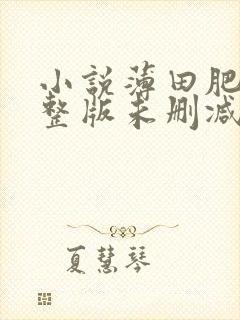 小説薄田肥
整版未删减
夏慧琴